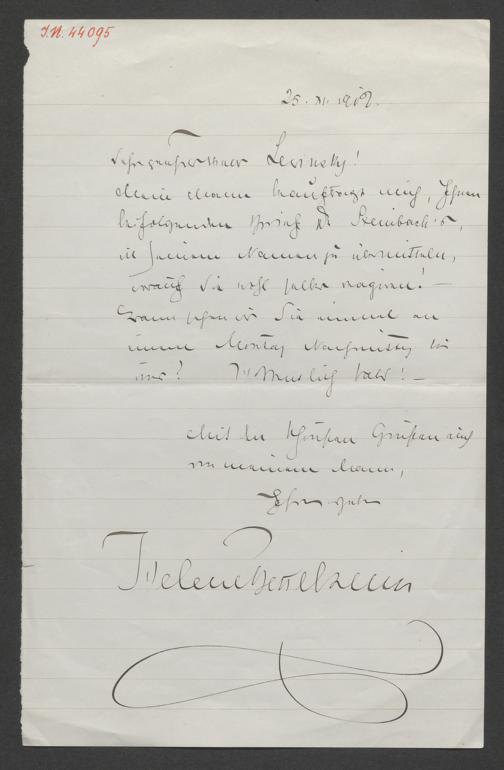 I.N. 44095
25. XI. 1902.
Sehr geehrter Herr Lewinsky!
Mein Mann beauftragt mich, Ihnen
beifolgenden Brief Dr Steinbach's,
in seinem Namen zu übermitteln,
worauf Sie wohl selber reagiren! –
Wann sehen wir Sie einmal an
einem Montag Nachmittag bei
uns? Hoffentlich bald! –
Mit den schönsten Grüßen auch
von meinem Mann,
Ihre
Helene Bettelheim